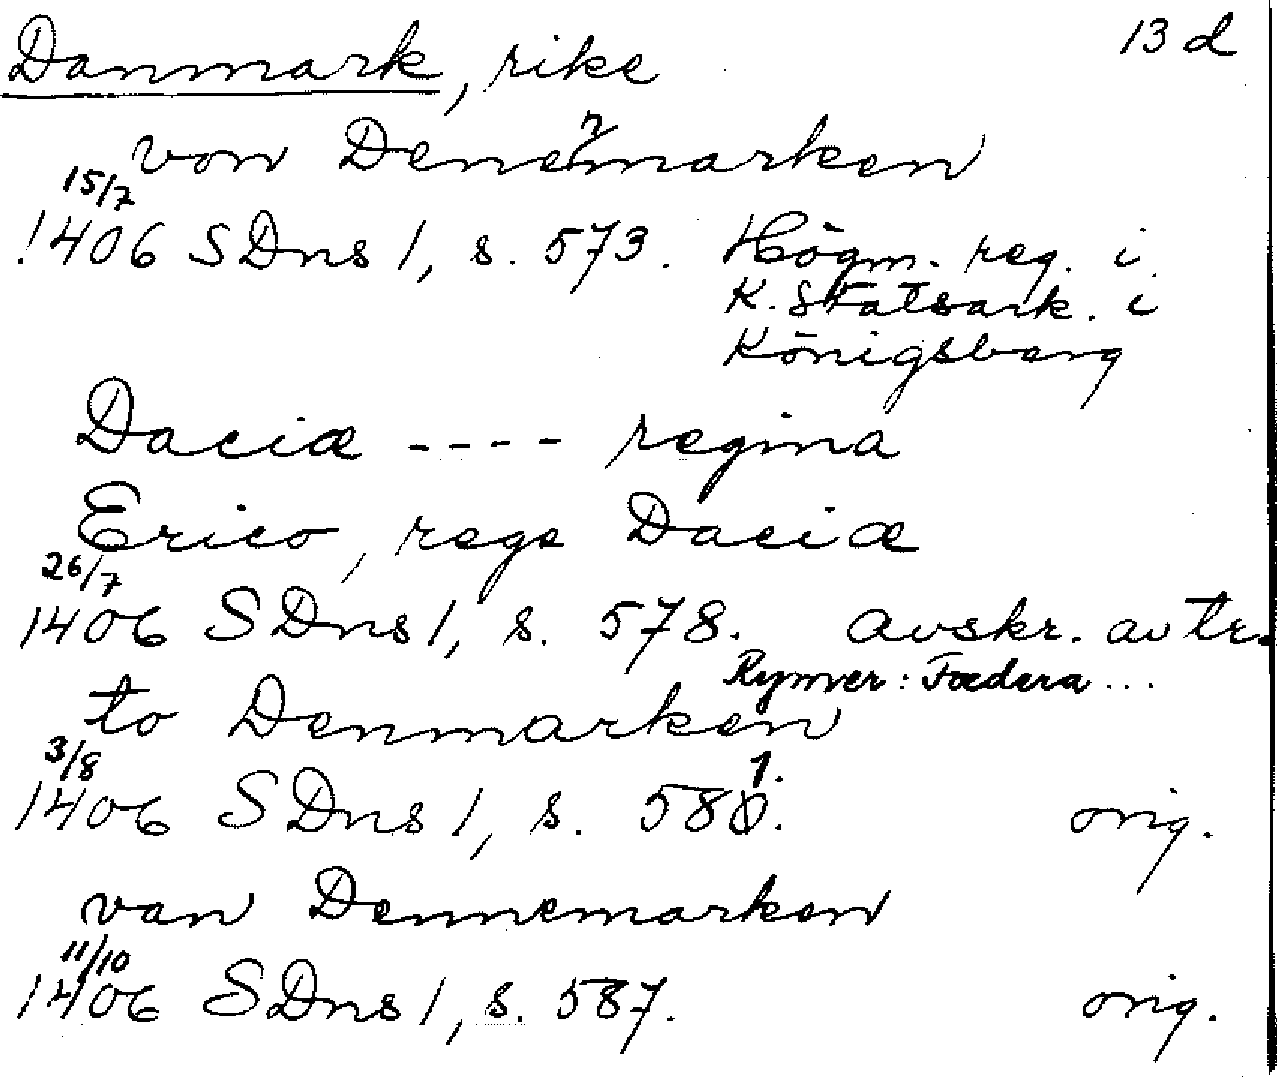 Danmark, rike 13 d
von Denenmarken
15/7
1406 SDns 1, s. 573. Högm. reg. i
K. Statsark. i
Königsberg
Daciæ ---- regina
Erico, rege Daciæ
26/7
1406 SDns 1, s. 578. avskr. av tr.
Rymer: Foedera ...
to Denmarken
3/8
1406 SDns 1, s. 581. orig.
van Dennemarken
11/10
1406 SDns 1, s. 587. orig.